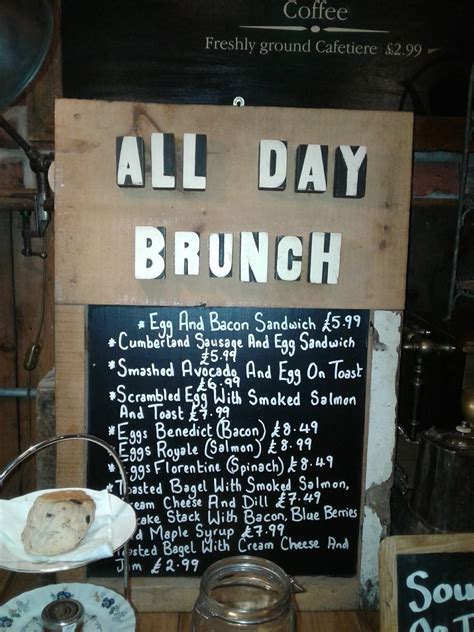 Coffee
Freshly ground Cafetiere £2.99
ALL DAY
BRUNCH
* Egg And Bacon Sandwich £5.99
* Cumberland Sausage And Egg Sandwich
£5.99
* Smashed Avocado And Egg On Toast
£6.99
* Scrambled Egg With Smoked Salmon
And Toast £7.99
* Eggs Benedict (Bacon) £8.49
Eggs Royale (Salmon) £8.99
* Eggs Florentine (Spinach) £8.49
Toasted Bagel With Smoked Salmon,
Cream Cheese And Dill £7.49
cake Stack With Bacon, Blue Berries
And Maple Syrup £7.99
Toasted Bagel With Cream Cheese And
Jam £2.99